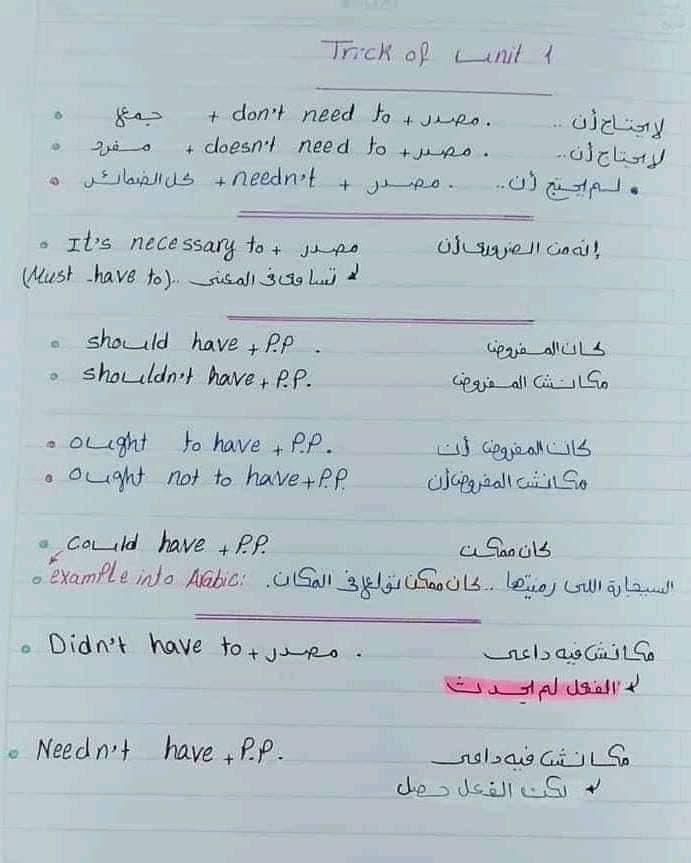 Trick of unit 1
• جمع + don't need to + مصدر . لا يحتاج أن ..
• مفرد + doesn't need to + مصدر . لا يحتاج أن..
• كل الضمائر + needn't + مصدر . لم يحتج أن.. •
• It's necessary to + مصدر إنه من الضرورى أن
(Must -have to).. تساوى فى المعنى
• should have + P.P . كان المفروض
• shouldn't have + P.P. مكانش المفروض
• ought to have + P.P. كان المفروض أن
• ought not to have + P.P. مكانش المفروض أن
• could have + P.P. كان ممكن
• example into Arabic: السيجارة اللى رميتها .. كان ممكن تولع فى المكان.
• Didn't have to + مصدر . مكانش فيه داعى
الفعل لم يحدث
• Needn't have + P.P. مكانش فيه داعى
لكن الفعل حصل